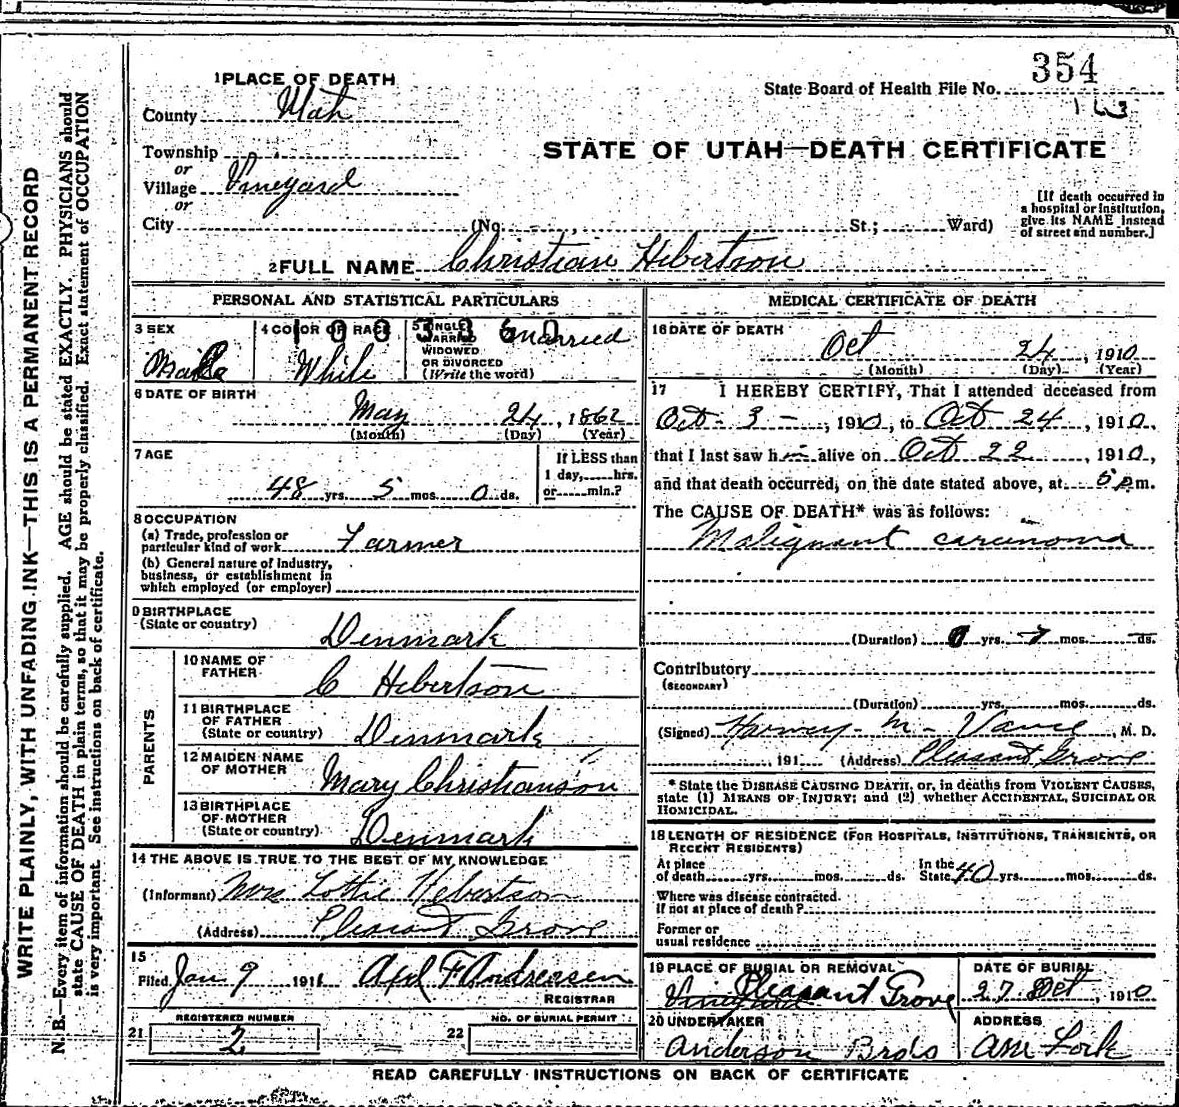 354
State Board of Health File No.
163
1 PLACE OF DEATH
County Utah
STATE OF UTAH—DEATH CERTIFICATE
Township
or
Village Vineyard
or
City (No. St.; Ward)
[If death occurred in
a hospital or institution,
give its NAME instead
of street and number.]
2 FULL NAME Christian Hebertson
PERSONAL AND STATISTICAL PARTICULARS
3 SEX
Male
4 COLOR OR RACE
White
1003860
5 SINGLE
MARRIED
WIDOWED
OR DIVORCED
(Write the word)
Married
6 DATE OF BIRTH
May 24, 1862
(Month) (Day) (Year)
7 AGE
48 yrs. 5 mos. 0 ds.
If LESS than
1 day, hrs.
or min.?
8 OCCUPATION
(a) Trade, profession or
particular kind of work Farmer
(b) General nature of industry,
business, or establishment in
which employed (or employer)
9 BIRTHPLACE
(State or country)
Denmark
PARENTS
10 NAME OF
FATHER
C Hebertson
11 BIRTHPLACE
OF FATHER
(State or country)
Denmark
12 MAIDEN NAME
OF MOTHER
Mary Christianson
13 BIRTHPLACE
OF MOTHER
(State or country)
Denmark
14 THE ABOVE IS TRUE TO THE BEST OF MY KNOWLEDGE
(Informant) Mrs Lottie Hebertson
(Address) Pleasant Grove
15
Filed Jan 9 1911 Axel F Andreasen
REGISTRAR
REGISTERED NUMBER
21 2
NO. OF BURIAL PERMIT
22
MEDICAL CERTIFICATE OF DEATH
16 DATE OF DEATH
Oct 24, 1910
(Month) (Day) (Year)
17 I HEREBY CERTIFY, That I attended deceased from
Oct - 3 -, 1910, to Oct 24, 1910,
that I last saw him alive on Oct 22, 1910,
and that death occurred, on the date stated above, at 5 p.m.
The CAUSE OF DEATH* was as follows:
Malignant carcinoma
(Duration) yrs. 7 mos. ds.
Contributory
(SECONDARY)
(Duration) yrs. mos. ds.
(Signed) Harvey M - Vance, M. D.
, 191 (Address) Pleasant Grove
* State the DISEASE CAUSING DEATH, or, in deaths from VIOLENT CAUSES,
state (1) MEANS OF INJURY; and (2) whether ACCIDENTAL, SUICIDAL OR
HOMICIDAL.
18 LENGTH OF RESIDENCE (FOR HOSPITALS, INSTITUTIONS, TRANSIENTS, OR
RECENT RESIDENTS)
At place
of death yrs. mos. ds.
In the
State 40 yrs. mos. ds.
Where was disease contracted.
If not at place of death?
Former or
usual residence
19 PLACE OF BURIAL OR REMOVAL
Vineyard Pleasant Grove
DATE OF BURIAL
27 Oct, 1910
20 UNDERTAKER
Anderson Bros
ADDRESS
Am Fork
READ CAREFULLY INSTRUCTIONS ON BACK OF CERTIFICATE
WRITE PLAINLY, WITH UNFADING INK—THIS IS A PERMANENT RECORD
N. B.—Every item of information should be carefully supplied. AGE should be stated EXACTLY. PHYSICIANS should
state CAUSE OF DEATH in plain terms, so that it may be properly classified. Exact statement of OCCUPATION
is very important. See instructions on back of certificate.